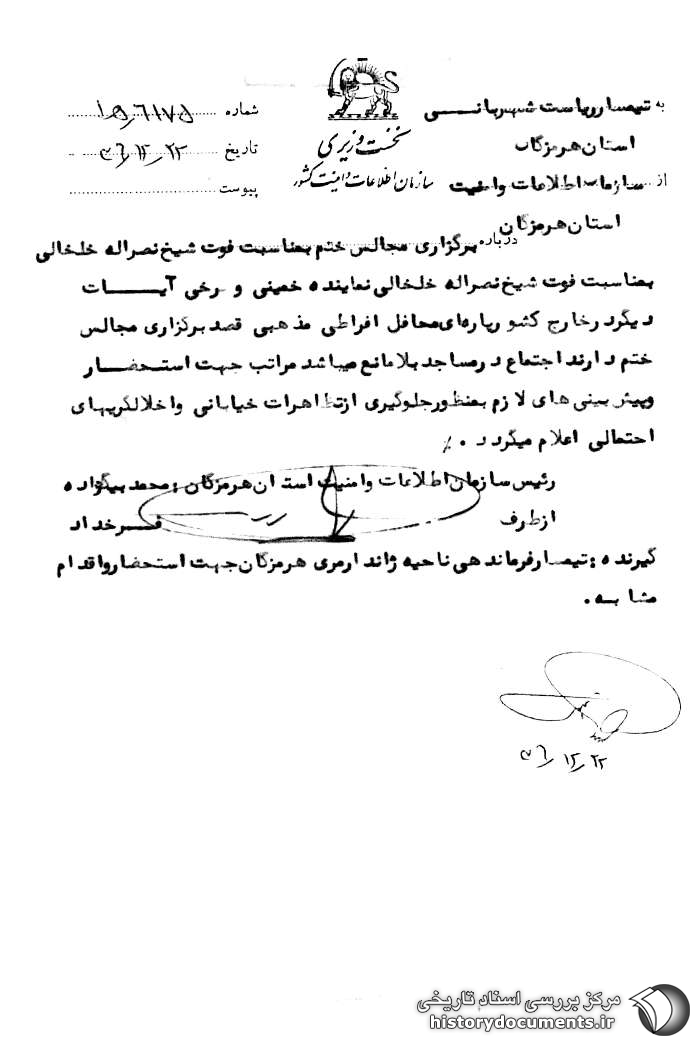 به تیمسار ریاست شهربانــی
استان هرمزگان
از سازمان اطلاعات وامنیت
استان هرمزگان
نخست وزیری
سازمان اطلاعات و امنیت کشور
شماره ۱۵/۶۱۷۵
تاریخ ۳۶/۱۲/۲۲
پیوست
درباره برگزاری مجالس ختم بمناسبت فوت شیخ نصراله خلخالی
بمناسبت فوت شیخ نصراله خلخالی نماینده خمینی و برخی آیـــات
دیگر در خارج کشور پاره‌ای محافل افراطی مذهبی قصد برگزاری مجالس
ختم دارند اجتماع در مساجد بلامانع میباشد مراتب جهت استـحضـــار
وپیش بینی های لازم بمنظور جلوگیری از تظاهرات خیابانی واخلالگریهای
احتمالی اعلام میگردد .٪
رئیس سازمان اطلاعات وامنیت استان هرمزگان : محمد بیگزاده
ازطرف فـــرخداد
گیرنده : تیمسار فرماندهی ناحیه ژاندارمری هرمزگان جهت استحضار واقدام
مشابه .
۳۶/۱۲/۲۲
مرکز بررسی اسناد تاریخی
historydocuments.ir